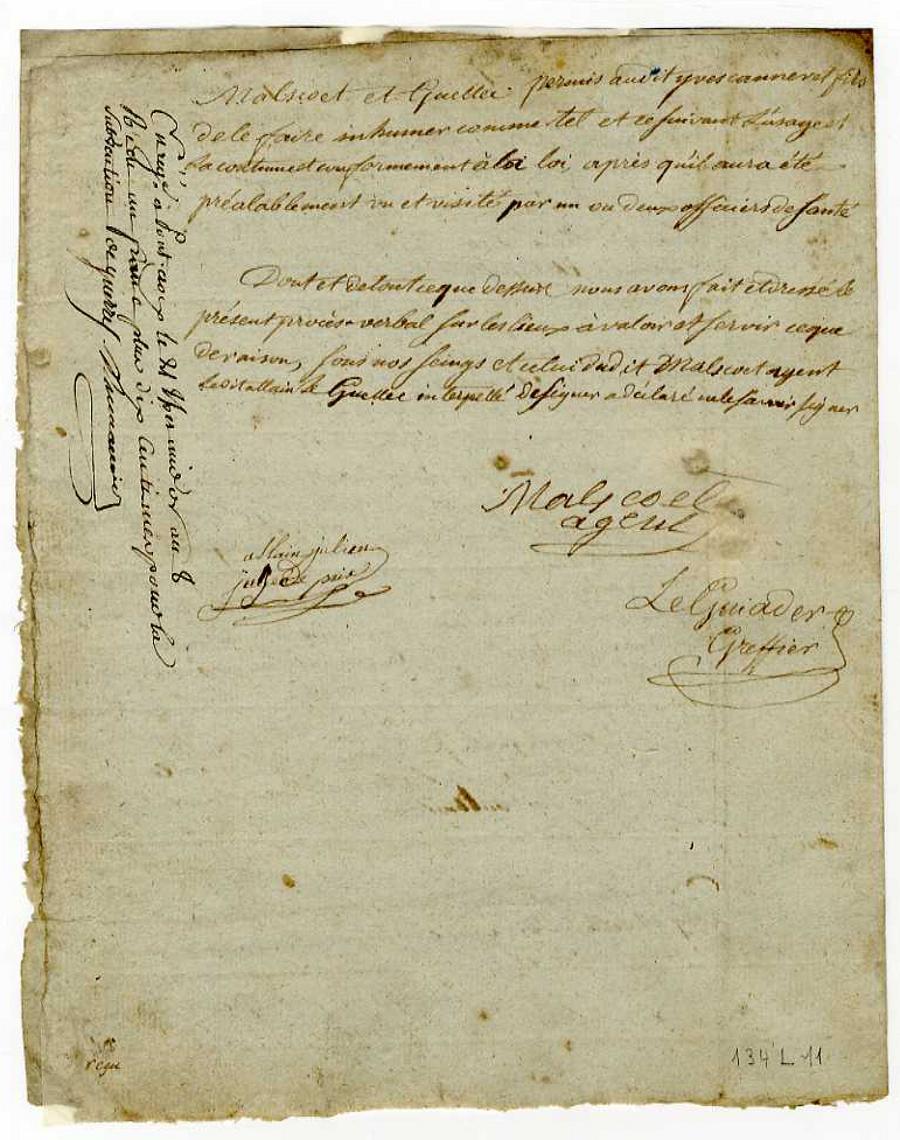 Malscoet et Guellec permis audit yves canneret fils
de le faire inhumer comme tel et ce suivant L'usage et
La coutume et conformement à la loi, après qu'il aura été
préalablement vu et visité par un ou deux officiers de santé
Dont et de tout ce que dessus nous avons fait et dressé le
présent procès-verbal sur les lieux à valoir et servir ce que
de raison, sous nos seings et celui dudit Malscoet agent
Ledit allain Le Guellec interpellé de signer a déclaré ne le savoir signer
Malscoet
agent
allain julien
juge de paix
Le Guiader
Greffier
Enregé à Pont-croix le 21 an 8
Reçu un franc plus dix centimes pour la
subvention de guerre.
reçu
134 L 11